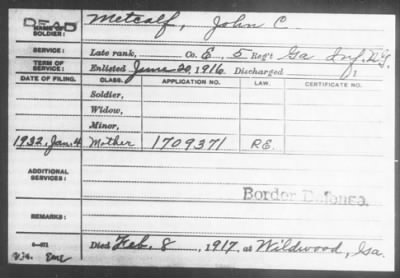 DEAD
NAME OF SOLDIER: Metcalf, John C
SERVICE: Late rank, Co. E, 5 Reg't Ga Inf. N.G.
TERM OF SERVICE: Enlisted June 20, 1916. Discharged , 1
DATE OF FILING. CLASS. APPLICATION NO. LAW. CERTIFICATE NO.
Soldier,
Widow,
Minor,
1932, Jan. 4 Mother 1709371 R.E.
ADDITIONAL SERVICES:
Border Defense.
REMARKS:
Died Feb. 8, 1917. at Wildwood, Ga.